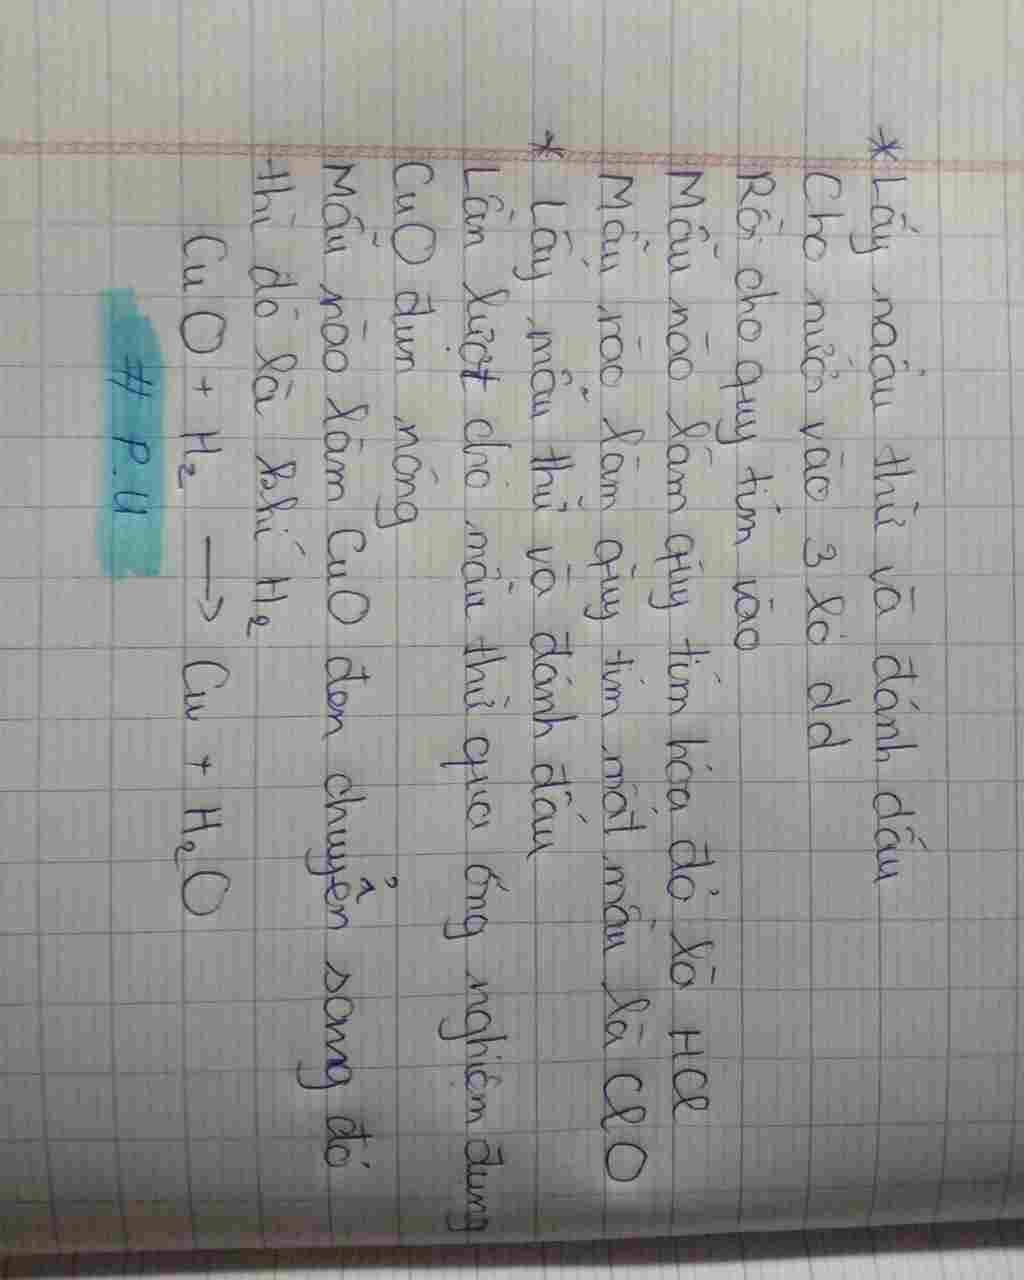 * Lấy mẫu thử và đánh dấu
Cho nước vào 3 lọ dd
Rồi cho quỳ tím vào
Mẫu nào làm quỳ tím hóa đỏ là HCl
Mẫu nào làm quỳ tím mất màu là ClO
* Lấy mẫu thử và đánh dấu
Lần lượt cho mẫu thử qua ống nghiệm đựng
CuO đun nóng
Mẫu nào làm CuO đen chuyển sang đỏ
thì đó là khí H₂
CuO + H₂ ⟶ Cu + H₂O
# P.U